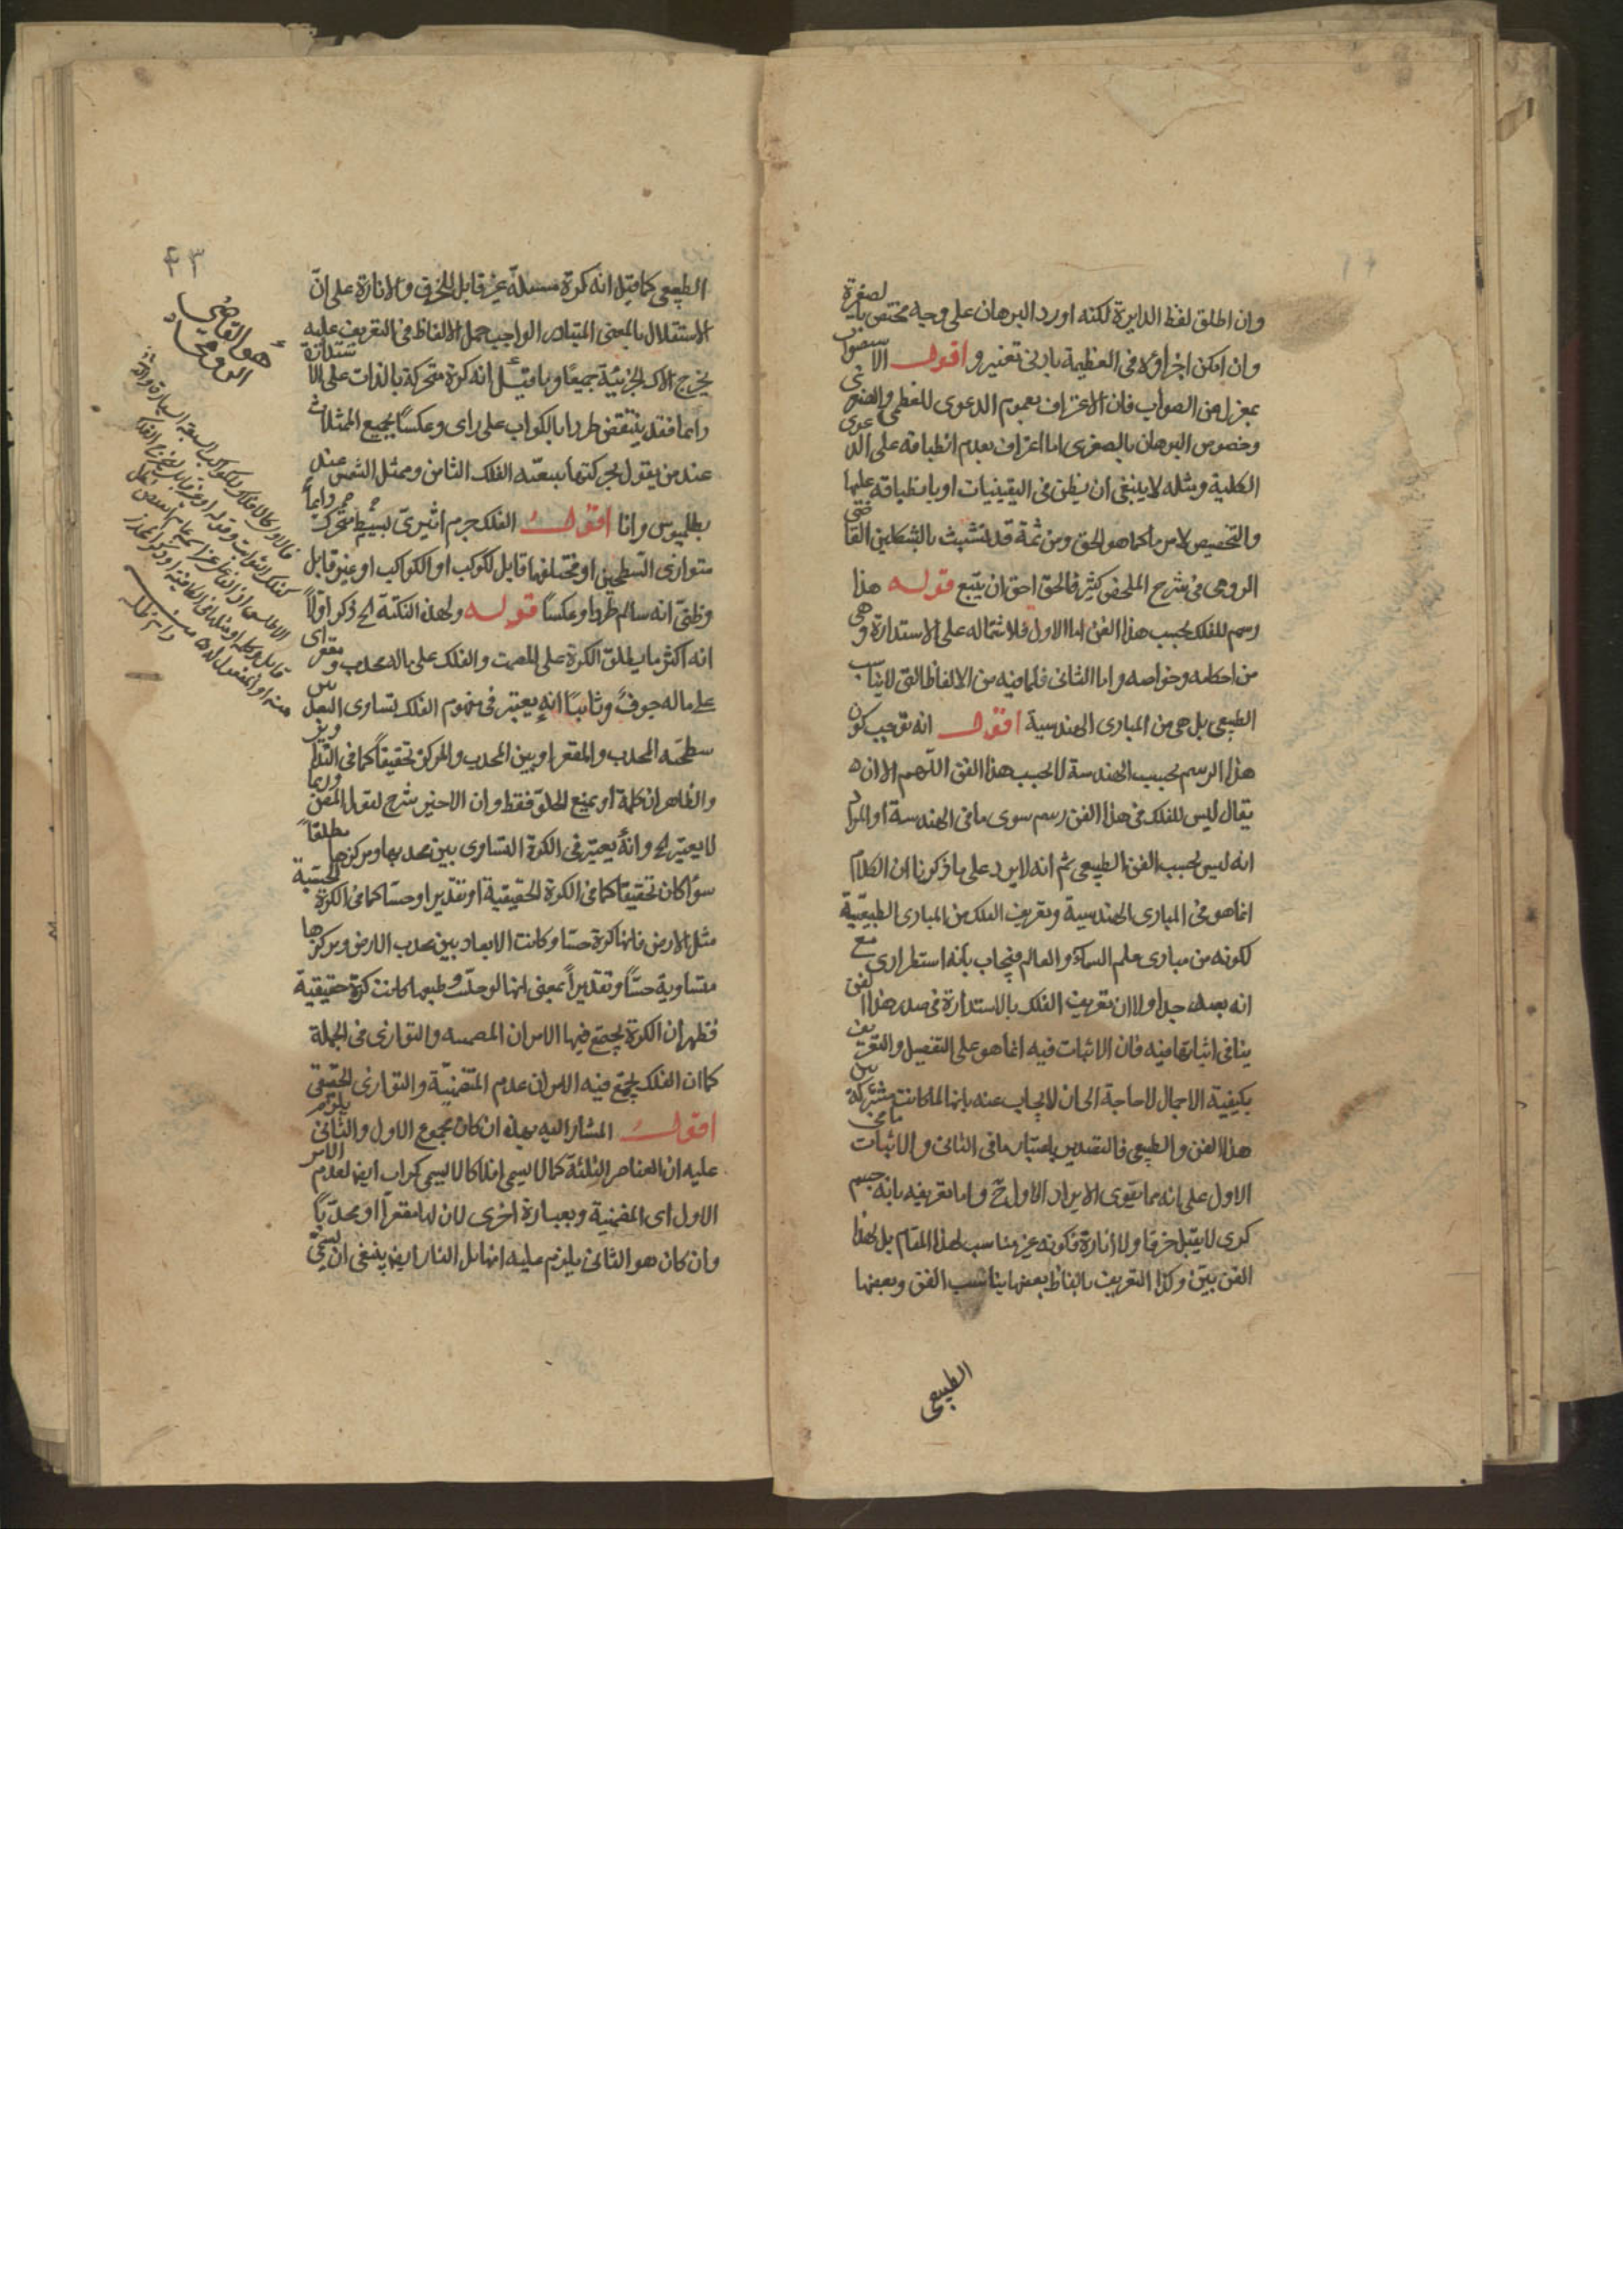 وان اطلق لفظ الدايرة لكنه اورد البرهان على وجه مختص بالصغرة
وان امكن اجراؤه فى العظيمة بادنى تغيير و اقول الاستصواب
بمعزل من الصواب فان الاعتراف بعموم الدعوى للعظمى والصغرى
وخصوص البرهان بالصغرى اما اعتراف بعدم انطباقه على الدعوى
الكلية ومثله لا ينبغى ان يظن فى اليقينيات او بانطباقه عليها
والتخصيص لامر ما كما هو الحق ومن ثمة قد تشبث بالشكلين القاضى
الرومى فى شرح الملخص كثير فالحق احق ان يتبع قوله هذا
رسم للفلك بحسب هذا الفن اما الاول فلاشتماله على الاستدارة وهى
من احكامه وخواصه واما الثانى فلما فيه من الالفاظ التى لا يناسب
الطبيعى بل هى من المبادى الهندسية اقول انه توجب كون
هذا الرسم بحسب الهندسة لا بحسب هذا الفن اللهم الا ان
يقال ليس للفلك فى هذا الفن رسم سوى ما فى الهندسة او المراد
انه ليس بحسب الفن الطبيعى ثم انه لا يرد على ما ذكرنا ان الكلام
انما هو فى المبادى الهندسية وتعريف الفلك من المبادى الطبيعية
لكونه من مبادى علم السماء والعالم فيجاب بانه استطرادى مع
انه بعيد جدا ولا ان تعريف الفلك بالاستدارة فى صدر هذا الفن
ينافى اثباتها فيه فان الاثبات فيه انما هو على التفصيل والتعريف
بكيفية الاجمال لا حاجة الى ان لا يجاب عنه بانها لما كانت مشتركة بين
هذا الفن والطبيعى فالتصدير باعتبار ما فى الثانى والاثبات ما فى
الاول على انه مما يقوى الايراد الاول ح واما تعريفه بانه جسم
كرى لا يقبل خرقا ولا انارة فكونه غير مناسب لهذا المقام بل لهذا
الفن بين وكذا التعريف بالفاظ بعضها يناسب الفن وبعضها
الطبيعى
٤٣
الطبيعى كما قيل انه كرة غير قابل للخرق والانارة على ان
الاستقلال بالمعنى المتبادر الواجب حمل الالفاظ فى التعريف عليه
يخرج الافلاك الجزئية جميعا وبما قيل انه كرة متحركة بالذات على الاستدارة
دايما فقد ينتقض طردا بالكواكب على راى وعكسا بجميع الممثلات
عند من يقول بحركتها بتبعية الفلك الثامن وممثل الشمس عند
بطلميوس وانا اقول الفلك جرم اثيرى بسيط متحرك دايما
متوازى السطحين او مختلفهما قابل لكوكب او الكواكب او غير قابل
وظنى انه سالم طردا وعكسا قوله ولهذه النكتة الخ ذكر اولا
انه اكثر ما يطلق الكرة على المصمت والفلك على ماله محدب ومقعر اى
على ماله جوف وثانيا انه يعتبر فى مفهوم الفلك تساوى البعد بين
سطحيه المحدب والمقعر او بين المحدب والمركز تحقيقا كما فى التداوير
والظاهر ان كلمة او بمنع الخلو فقط وان الاخير شرح لقول المص وربما
لا يعتبر الخ وانه يعتبر فى الكرة التساوى بين محدبها ومركزها مطلقا
سواء كان تحقيقا كما فى الكرة الحقيقية او تقديرا وحسا كما فى الكرة الحسية
مثل الارض فانها كرة حسا وكانت الابعاد بين محدب الارض ومركزها
متساوية حسا وتقديرا بمعنى انها لو خليت وطبعها كانت كرة حقيقية
فظهر ان الكرة يجتمع فيها الامران المصمتية والتوازى فى الجملة
كما ان الفلك يجتمع فيه الامران عدم المصمتية والتوازى الحقيقى
اقول المشار اليه بهذه ان كان مجموع الاول والثانى يلزم
عليه ان العناصر الثلثة كما لا يسمى افلاكا لا يسمى كرات ايضا لعدم الامر
الاول اى المصمتية وبعبارة اخرى لان لها مقعرا او محدبا
وان كان هو الثانى يلزم عليه انها بل النار ايضا ينبغى ان يسمى
هو القاضى
الرومى